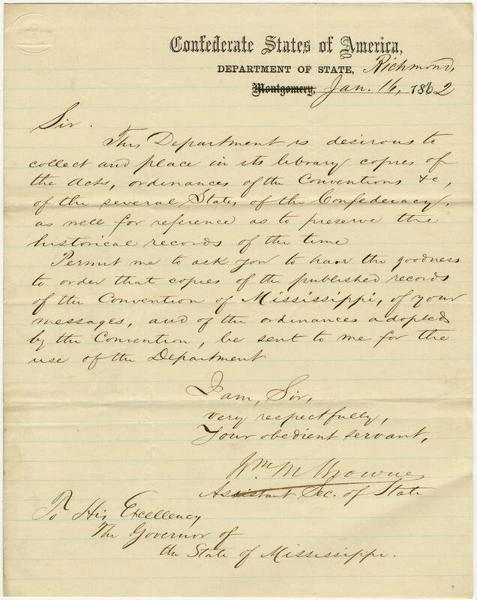 Confederate States of America,
DEPARTMENT OF STATE, Richmond,
Montgomery, Jan. 16, 1862
Sir.
This Department is desirous to
collect and place in its library copies of
the Acts, ordinances of the Conventions &c,
of the several States, of the Confederacy,
as well for reference as to preserve the
historical records of the time
Permit me to ask you to have the goodness
to order that copies of the published records
of the Convention of Mississippi, of your
messages, and of the ordinances adopted
by the Convention, be sent to me for the
use of the Department
I am, Sir,
very respectfully,
Your obedient servant,
Wm. M Browne
Assistant Sec. of State
To His Excellency
The Governor of
the State of Mississippi.